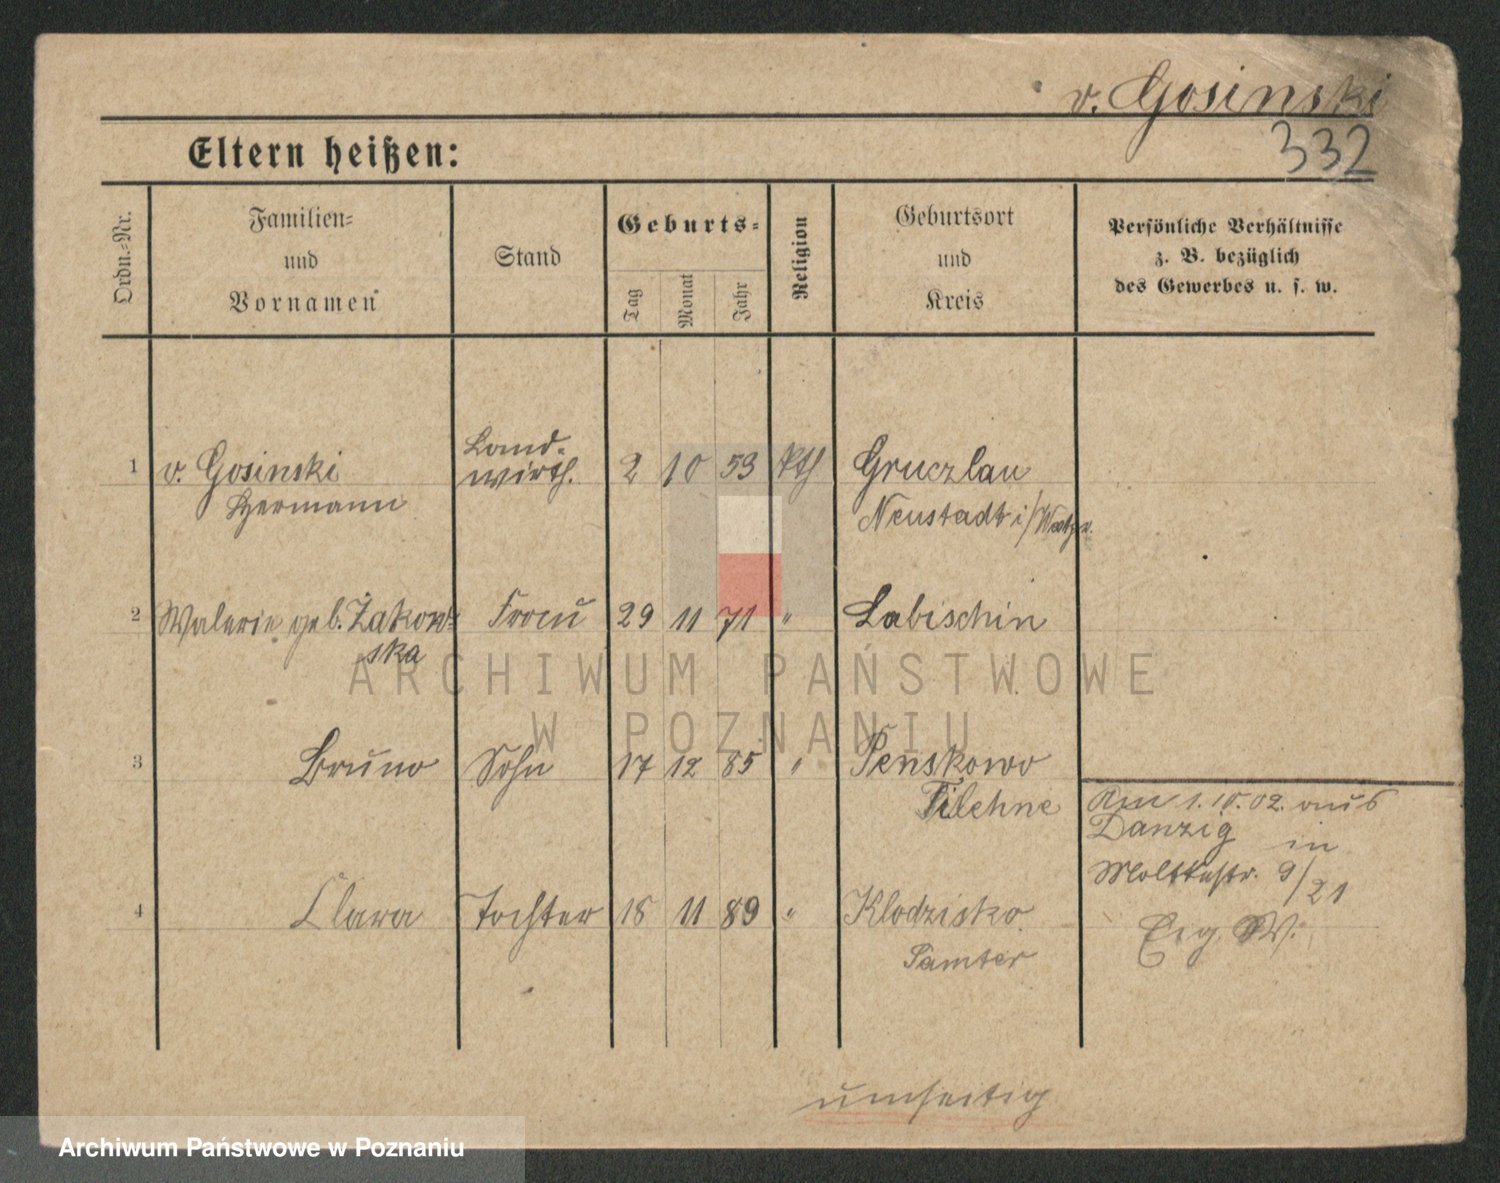 v. Gosinski
332
Eltern heißen:
Ordn.-Nr.
Familien-
und
Vornamen
Stand
Geburts-
Tag
Monat
Jahr
Religion
Geburtsort
und
Kreis
Persönliche Verhältnisse
z. B. bezüglich
des Gewerbes u. s. w.
1 v. Gosinski Land-wirth. 2 10 53 kth Gruczlau
Hermann Neustadt i/Westpr.
2 Walerie geb. Żakow- Frau 29 11 71 " Labischin
ska
3 Bruno Sohn 17 12 85 " Penskowo
Filehne
Am 1.10.02. aus
Danzig in
Moltkestr. 9/21
4 Clara Tochter 18 11 89 " Klodzisko
Samter
Erg. W.
umseitig
ARCHIWUM PAŃSTWOWE
W POZNANIU
Archiwum Państwowe w Poznaniu